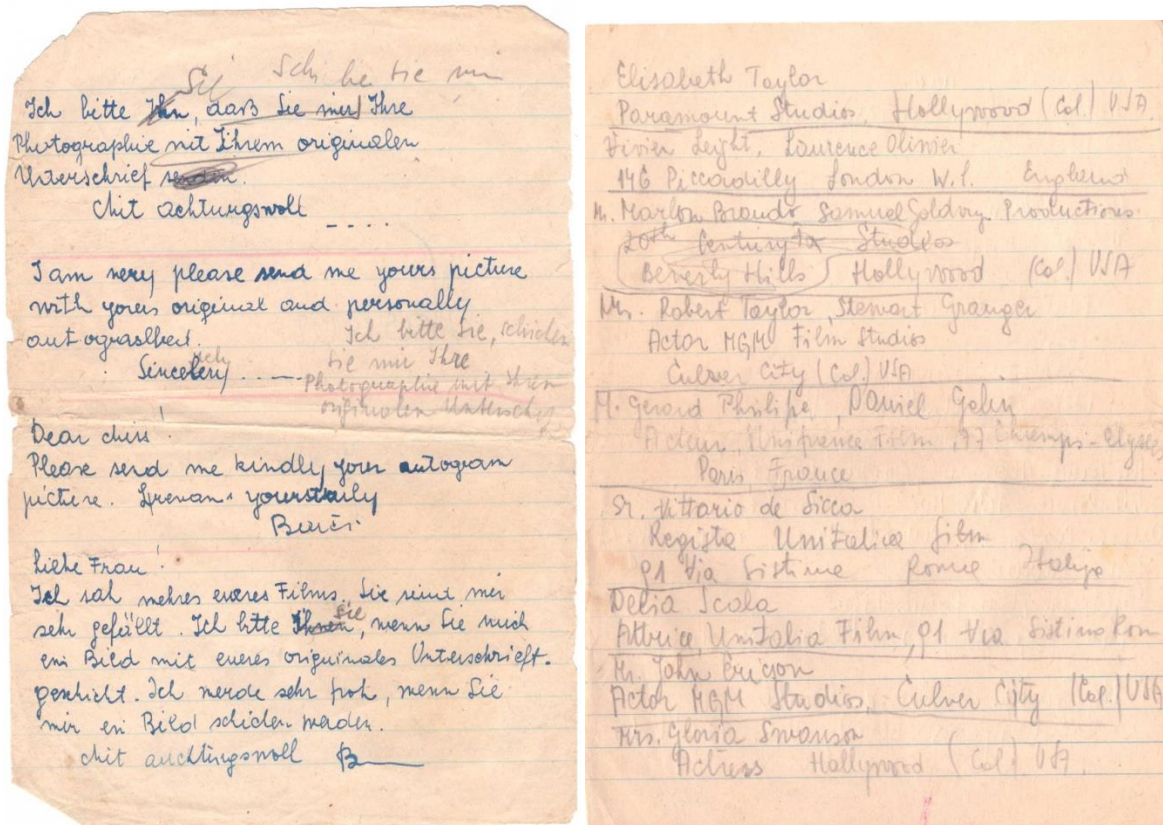 Sie Schi be Sie mir
Ich bitte Ihn, daß Sie mir Ihre
Photographie mit Ihrem originalen
Unterschrief senden.
Mit achtungsvoll
- - - -
I am very please send me yours picture
with yours original and personally
autograshed.
Ich bitte Sie, schicken
Sincelery ....
Sie mir Ihre
Photographie mit Ihren
originalen
Dear Miss!
Please send me kindly your autogram
picture. yourstruly
Liebe Frau!
Ich sah mehres eueres Films. Sie seint mir
sehr gefällt. Ich bitte Ihnen Sie, wenn Sie mich
ein Bild mit eueres originales Unterschrieft.
geschickt. Ich werde sehr froh, wenn Sie
mir ein Bild schicken werden.
Mit auchtungsvoll B
Elisabeth Taylor
Paramount Studios, Hollywood (Cal.) USA
Vivien Leight, Laurence Olivier
146 Piccadilly London W.1. England
M. Marlon Brando Samuel Goldvyn Productions
20th Century Fox Studios
Beverly Hills Hollywood (Cal.) USA
Mr. Robert Taylor, Stewart Granger
Actor MGM Film Studios
Culver City (Cal.) USA
M. Gerard Philipe, Daniel Gelin
Acteur, Unifrance Film, 77 Champs-Elysees
Paris France
Sr. Vittorio de Sicca
Regista Unitalia film
91 Via Sistina Roma Italija
Delia Scala
Attrice, Unitalia Film, 91 Via Sistina Rom
Mr. John Ericson
Actor MGM Studios, Culver City (Cal.) USA
Mrs. Gloria Swanson
Actress Hollywood (Cal.) USA